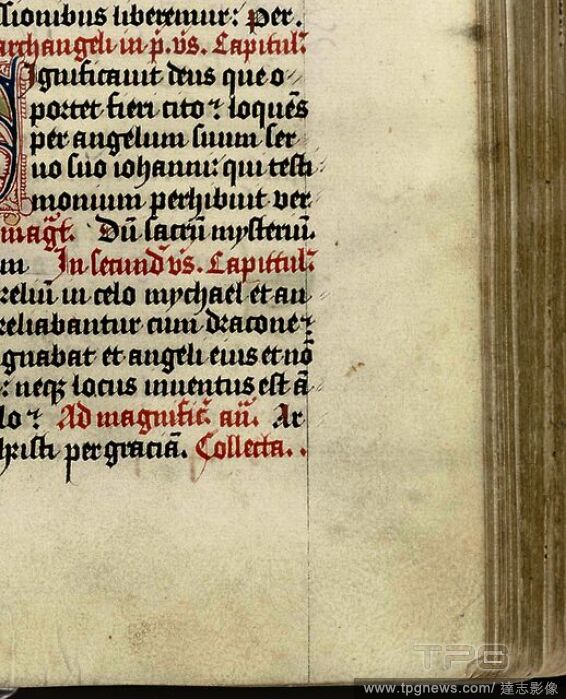 ssionibus liberemur: Per.
archangeli in p. vs. Capitul:
ignificauit deus que o
portet fieri cito ⁊ loquēs
per angelum suum ser
uo suo iohanni: qui testi
monium perhibuit ver
magt. Dū sacrū mysteriū.
m In secund vs. Capittul:
relium in celo mychael et an
reliabantur cum dracone ⁊
gnabat et angeli eius et nō
: neqꝫ locus inuentus est ā
lo ⁊ Ad magnific̄. an̄. Ar
hristi per graciā. Collecta..
TPG
www.tpgnews.com/ 達志影像